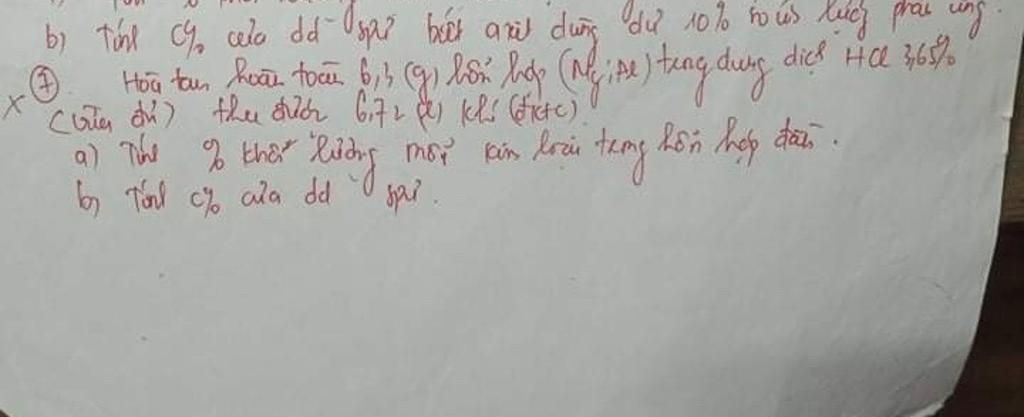 b) Tính C% của dd spư biết axit dùng dư 10% so với lượng phản ứng.
7) Hoà tan hoàn toàn 6,3 (g) hỗn hợp (Mg; Al) trong dung dịch HCl 3,65%
(vừa đủ) thu được 6,72 (l) khí (đktc).
a) Tính % khối lượng mỗi kim loại trong hỗn hợp đầu.
b) Tính C% của dd spư.